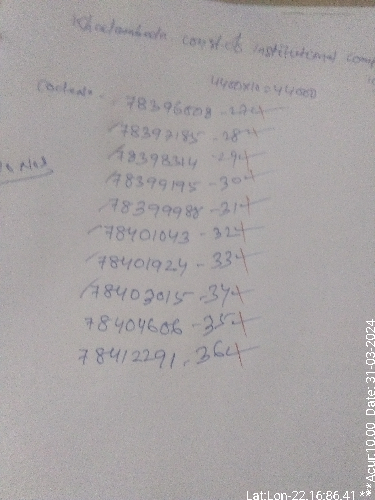 Khadambada const of institutional comp
4400x10=44000
Code No -
78396008 - 27
78397185 - 28
78398314 - 29
78399195 - 30
78399988 - 31
78401043 - 32
78401924 - 33
78403015 - 34
78404606 - 35
78412291 - 36
Lat:Lon-22.16:86.41 ***Acur:10.00 Date: 31-03-2024